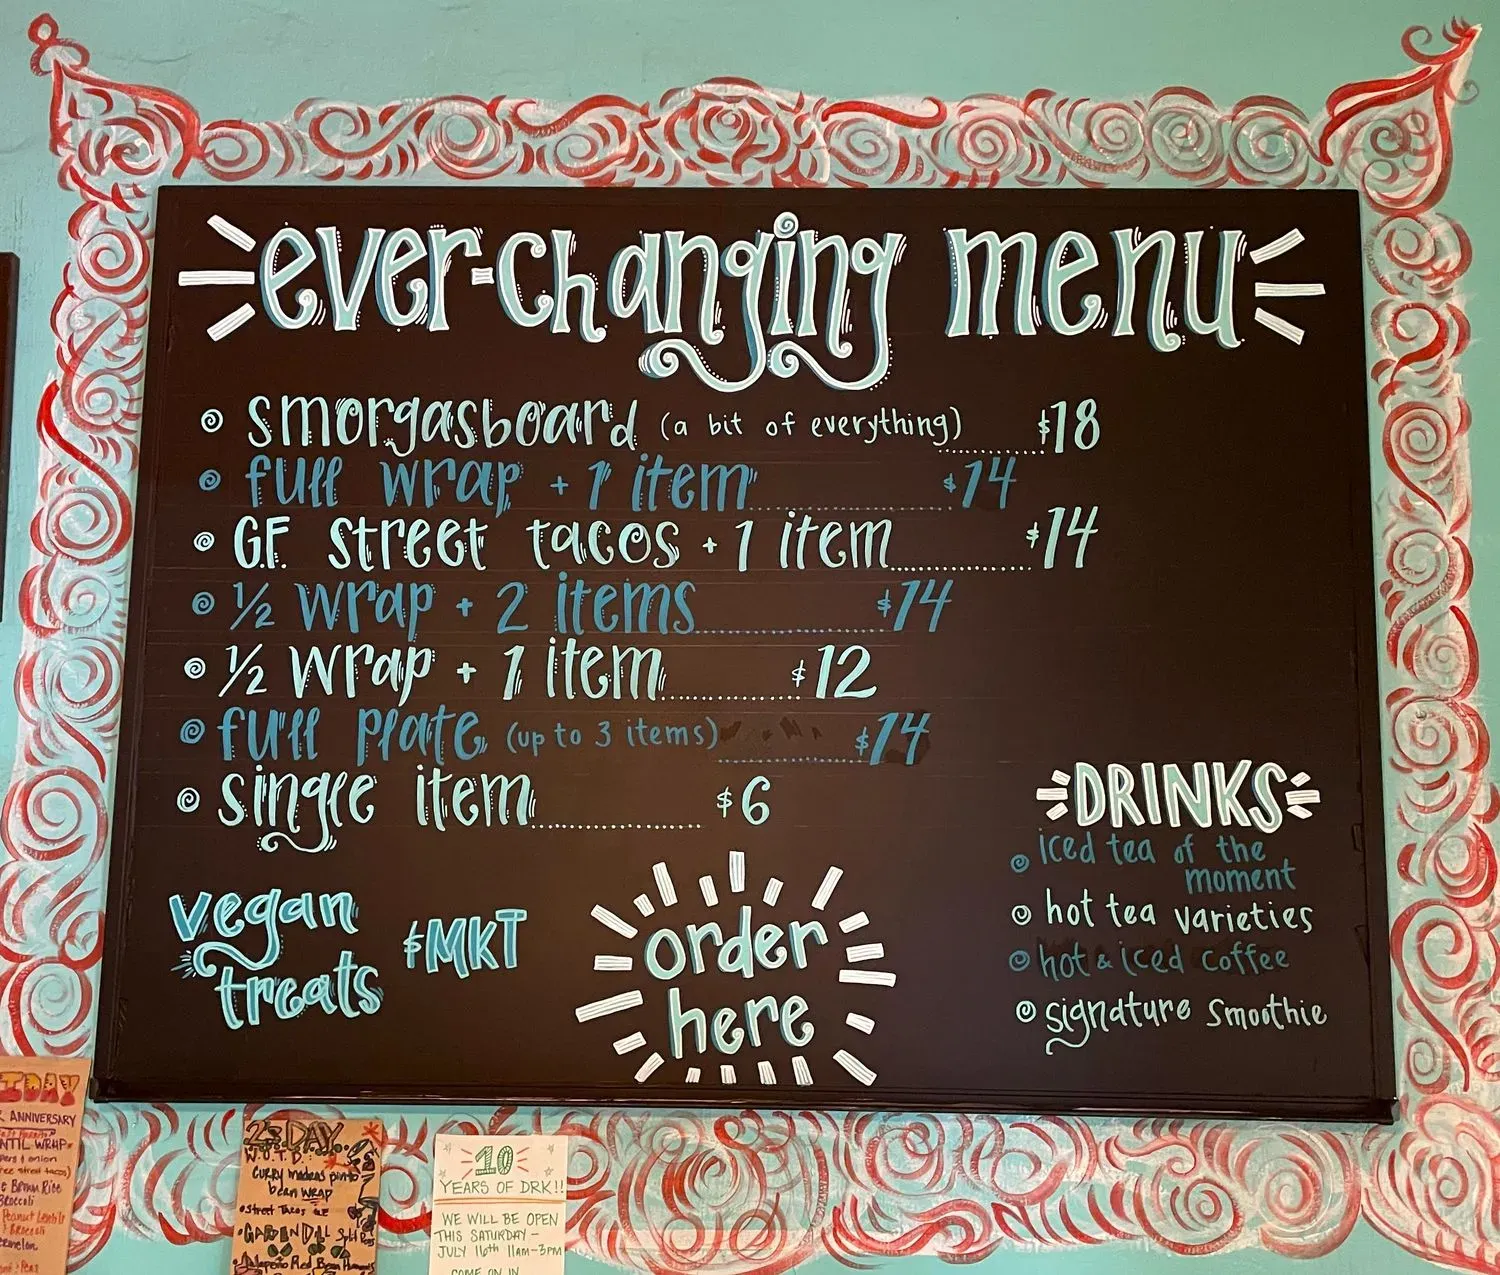 ever-changing menu
smorgasboard (a bit of everything) $18
full wrap + 1 item $14
G.F. street tacos + 1 item $14
1/2 wrap + 2 items $14
1/2 wrap + 1 item $12
full plate (up to 3 items) $14
single item $6
vegan
treats
$MKT
order
here
DRINKS
iced tea of the
moment
hot tea varieties
hot & iced coffee
signature smoothie
ANNIVERSARY
WRAP
onion
street tacos)
Brown Rice
Broccoli
Peanut
DAY
W.O.T.D.
Curry madras pinto
bean WRAP
Street Tacos GF
Jalapeño Red Bean
10
YEARS OF DRK!!
WE WILL BE OPEN
THIS SATURDAY -
JULY 16th 11am-3PM
COME ON IN